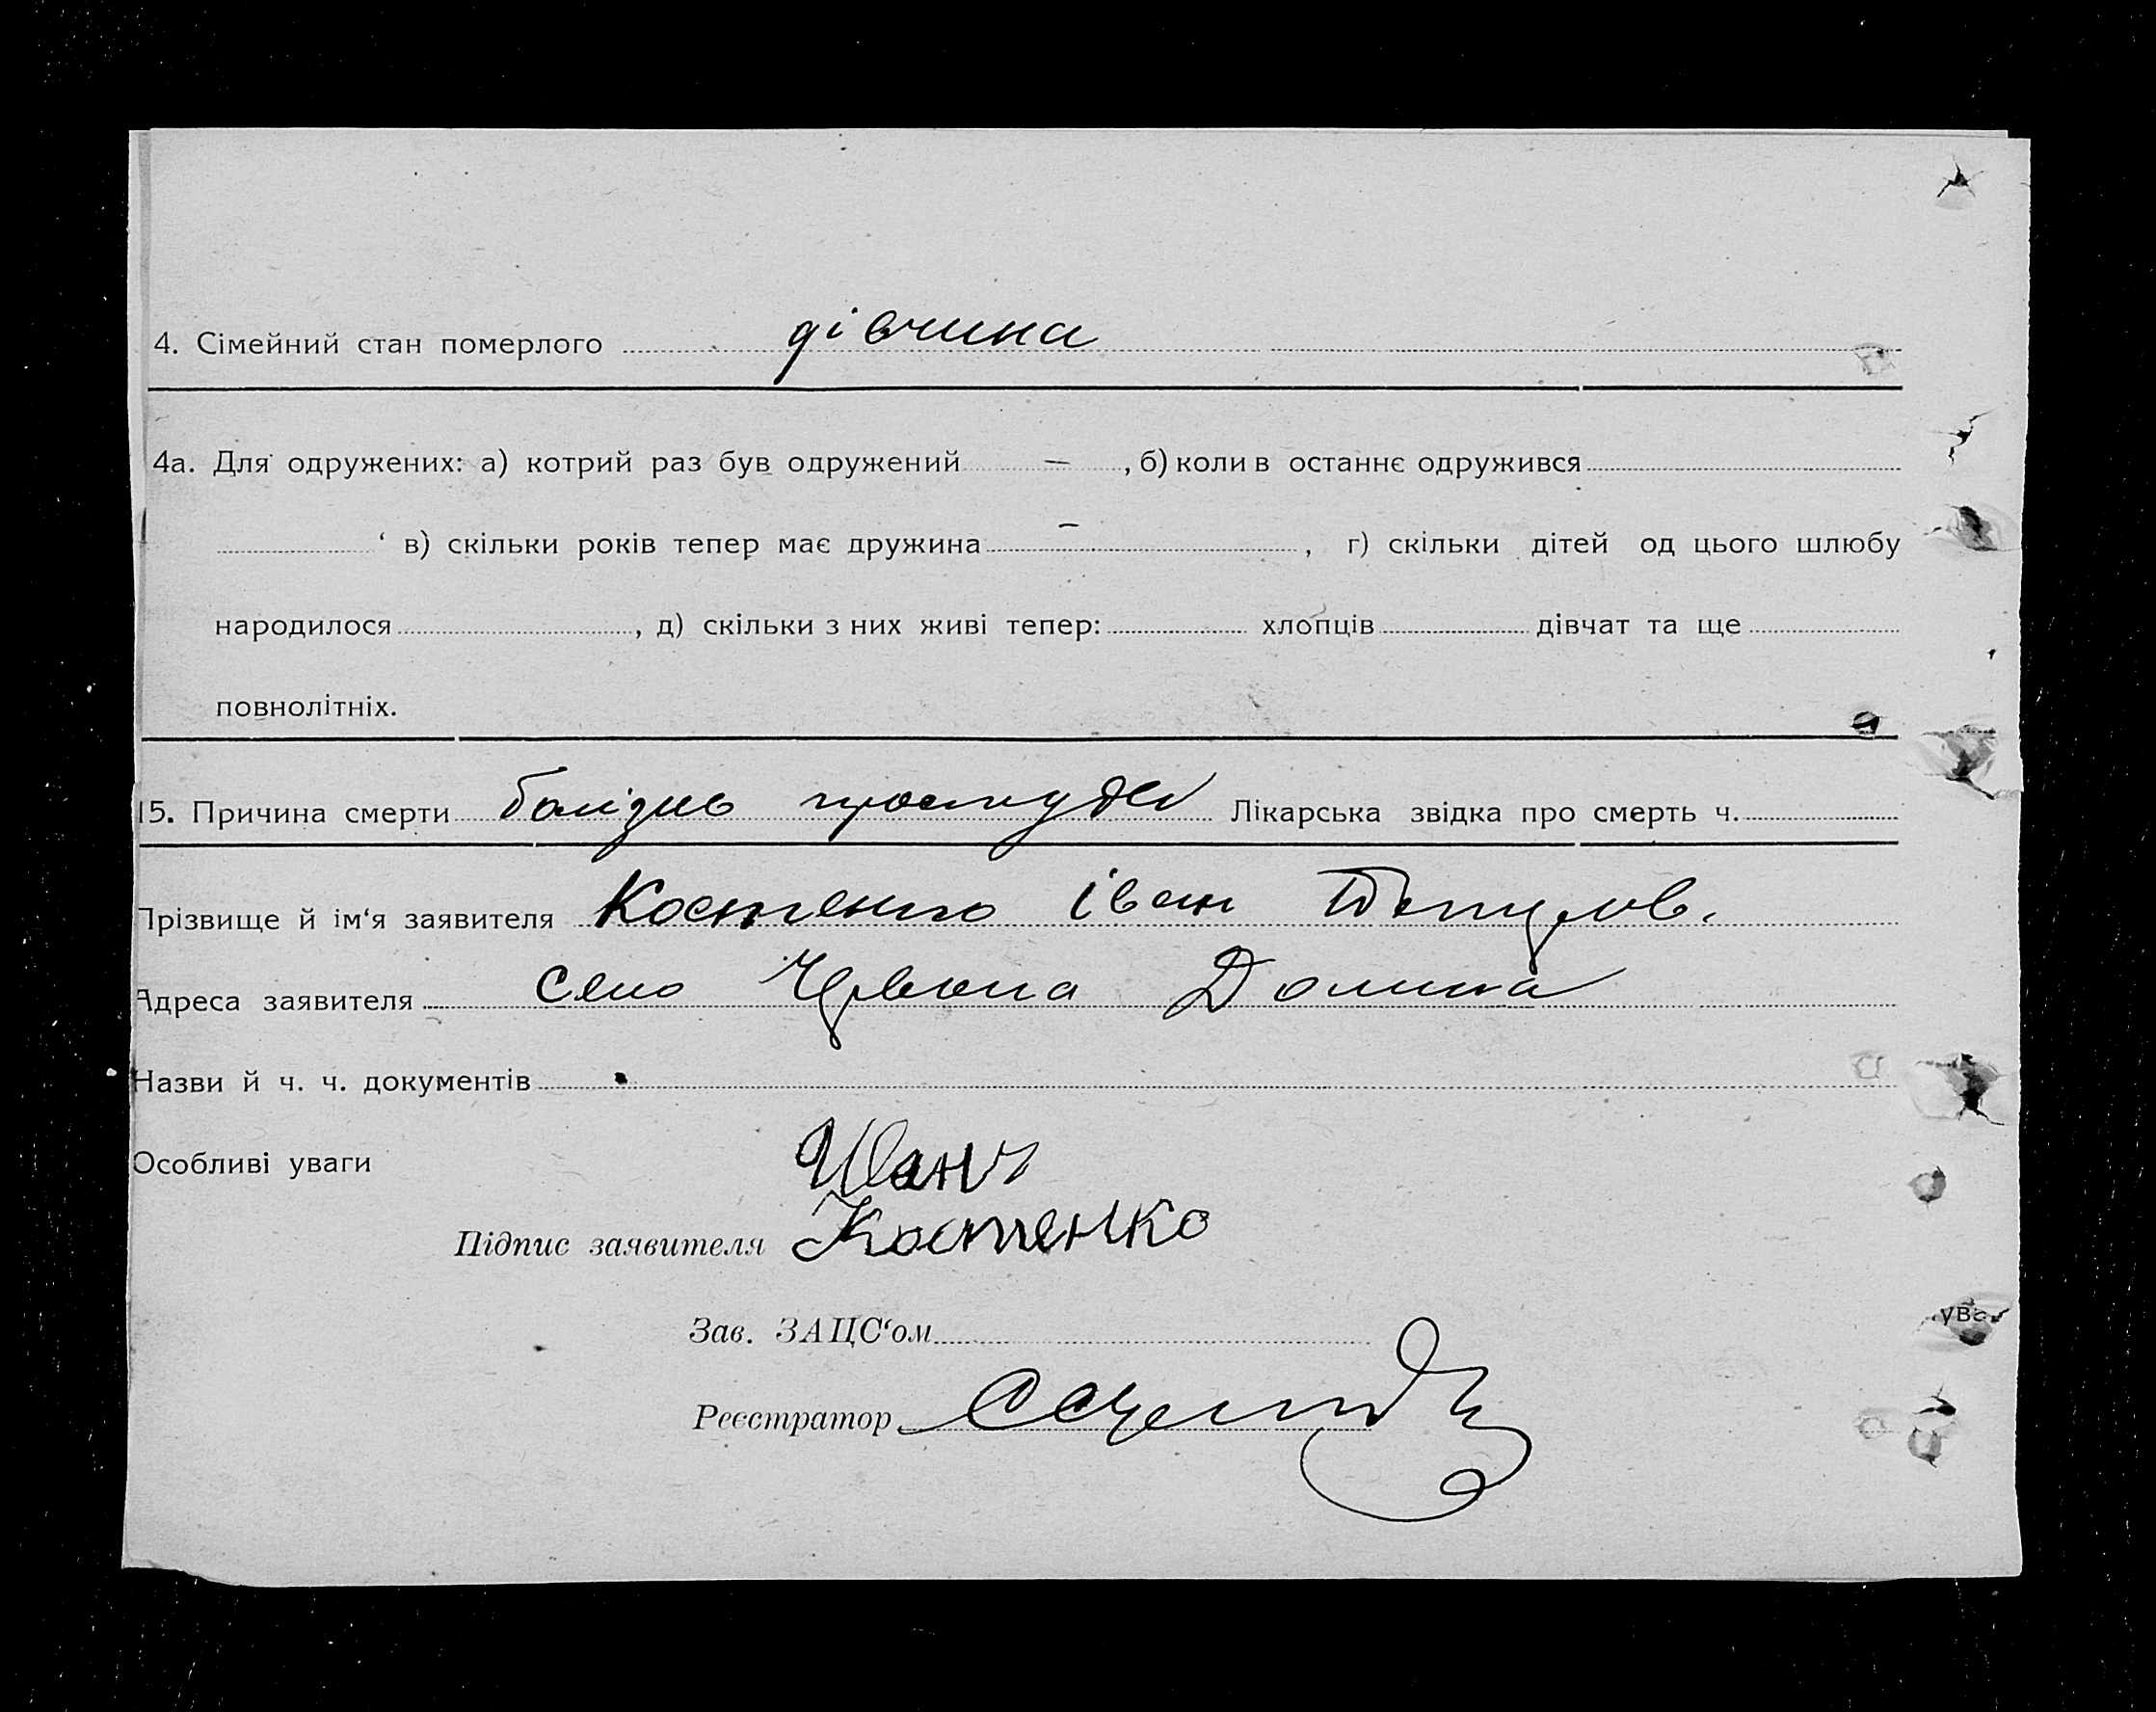 4. Сімейний стан померлого дівчина
4а. Для одружених: а) котрий раз був одружений — , б) коли в останнє одружився
‘ в) скільки років тепер має дружина — , г) скільки дітей од цього шлюбу
народилося , д) скільки з них живі тепер: хлопців дівчат та ще
повнолітніх.
15. Причина смерти болізнь простуда Лікарська звідка про смерть ч.
Прізвище й ім‘я заявителя Костенко Іван
Адреса заявителя село Червона Долина
Назви й ч. ч. документів
Особливі уваги
Иван
Підпис заявителя Костенко
Зав. ЗАЦС‘ом
Реєстратор